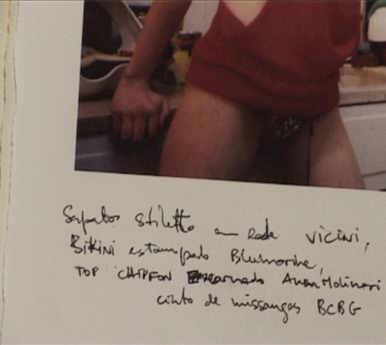 Sapatos stiletto em rede VICINI,
Bikini estampado Blumarine,
TOP CHIFFON Encarnado Anna Molinari
cinto de missangas BCBG